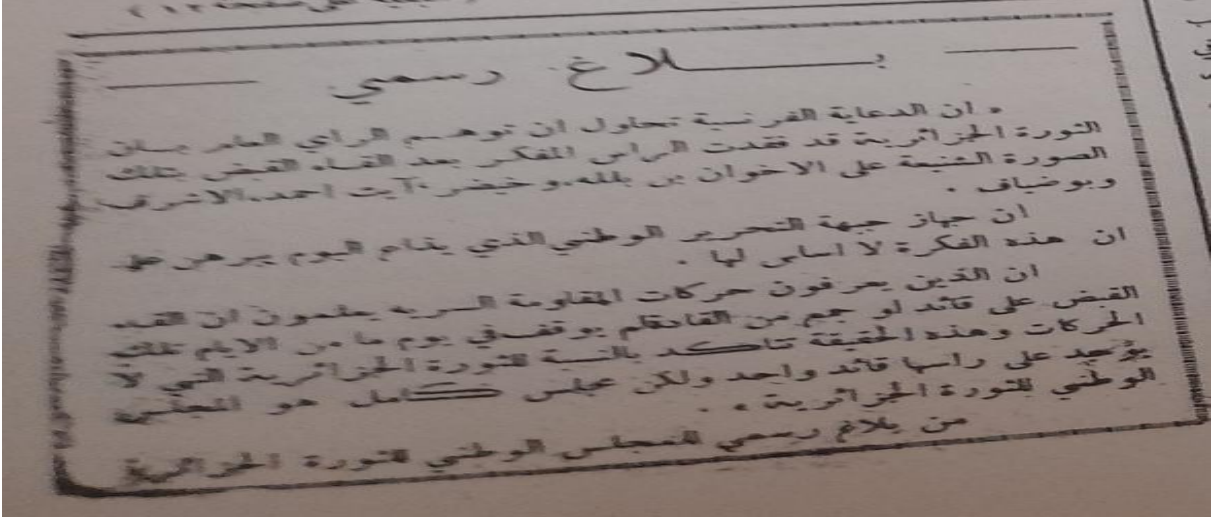 بـــلاغ رسمي
« ان الدعاية الفرنسية تحاول ان توهم الراي العام بان
الثورة الجزائرية قد فقدت الراس المفكر بعد القاء القبض بتلك
الصورة الشنيعة على الاخوان بن بلله، وخيضر، آيت احمد، الاشرف
وبوضياف .
ان جهاز جبهة التحرير الوطني الذي ينام اليوم يبرهن على
ان هذه الفكرة لا اساس لها .
ان الذين يعرفون حركات المقاومة السرية يعلمون ان القاء
القبض على قائد او جمع من القادة لم يوقف في يوم ما من الايام تلك
الحركات وهذه الحقيقة تتاكد بالنسبة للثورة الجزائرية التي لا
يوجد على راسها قائد واحد ولكن مجلس كامل هو المجلس
الوطني للثورة الجزائرية » .
من بلاغ رسمي للمجلس الوطني للثورة الجزائرية